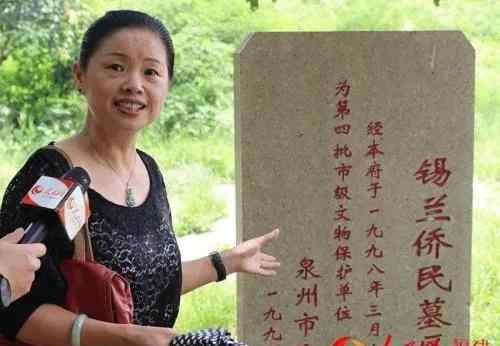 锡兰侨民墓
经本府于一九九八年三月
为第四批市级文物保护单位
泉州市
一九九